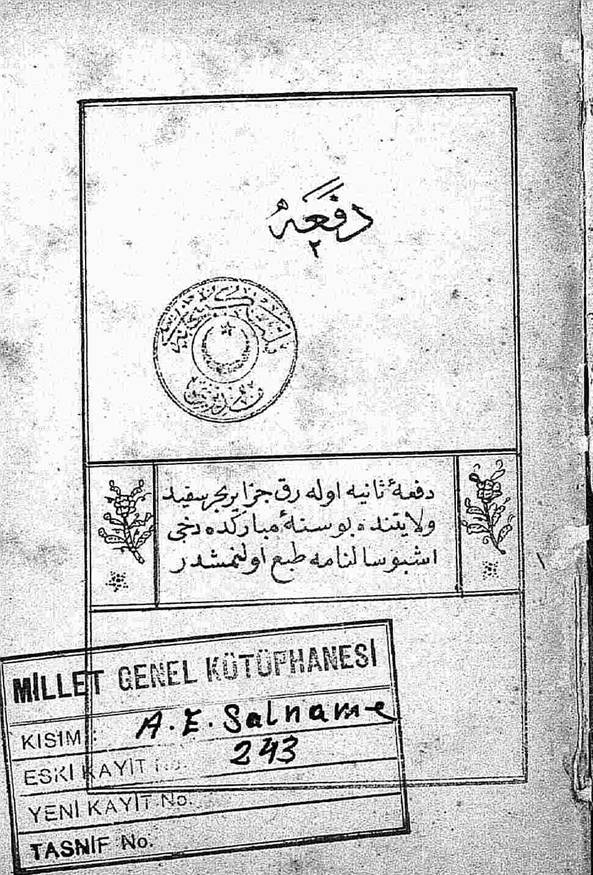 دفعه
٢
دفعۀ ثانیه اوله رق جزایر بحر سفید
ولایتنده بوسنۀ مبارکده دخی
اشبو سالنامه طبع اولنمشدر
MİLLET GENEL KÜTÜPHANESİ
KISIM : A.E. Salname
ESKİ KAYIT No. 243
YENİ KAYIT No.
TASNİF No.